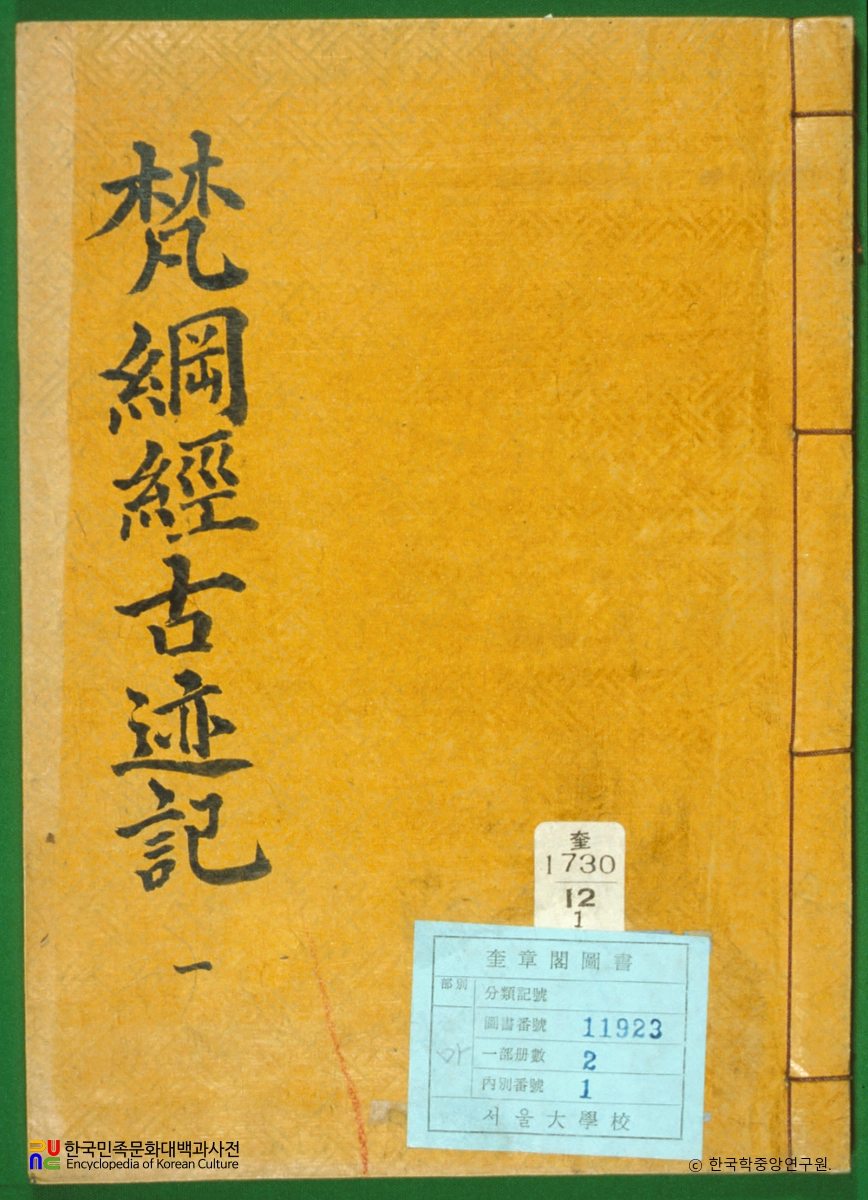 梵網經古迹記
一
奎
1730
12
1
奎章閣圖書
部別
分類記號
圖書番號 11923
一部册數 2
內別番號 1
서울大學校
한국민족문화대백과사전
Encyclopedia of Korean Culture
ⓒ 한국학중앙연구원.